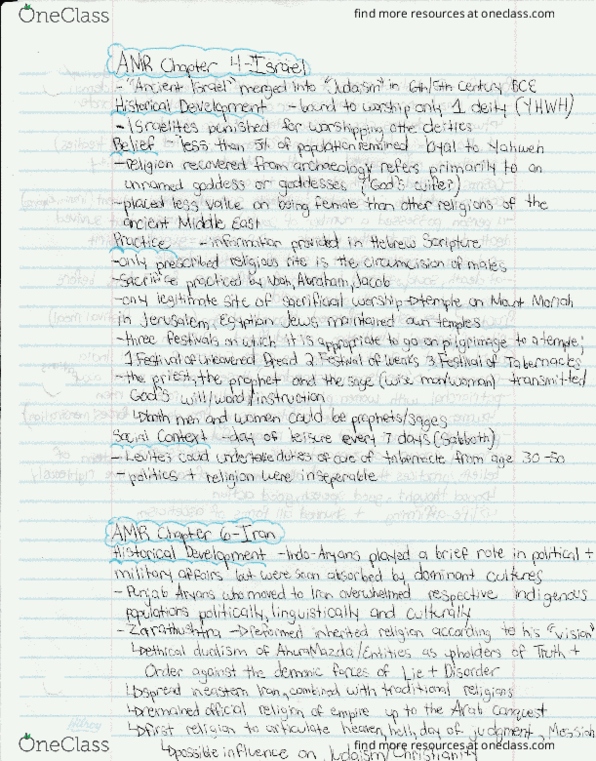 OneClass
find more resources at oneclass.com
AMR Chapter 4-Israel
- "Ancient Israel" merged into "Judaism" in 6th/5th Century BCE
Historical Development - bound to worship only 1 deity (YHWH)
- Israelites punished for worshipping othe deities
Belief - less than 5th of population remained loyal to Yahweh
- religion recovered from archaeology refers primarily to an
unnamed goddess or goddesses ("God's wife?)
- placed less value on being female than other religions of the
ancient Middle East
Practice - information provided in Hebrew Scripture
- only prescribed religious rite is the circumcision of males
- Sacrifice practiced by Noah, Abraham, Jacob
- only legitimate site of sacrificial worship → temple on Mount Moriah
in Jerusalem, Egyptian Jews maintained own temples
- three festivals on which it is appropriate to go on pilgrimage to a temple;
1. Festival of unleavened Bread 2. Festival of Weeks 3. Festival of Tabernacles
- the priest, the prophet and the sage (wise man/woman) transmitted
God's will/word/instruction
↳ both men and women could be prophets/sages
Social Context - day of leisure every 7 days (Sabbath)
- Levites could undertake duties of care of tabernacle from age 30-50
- politics + religion were inseperable
AMR Chapter 6-Iran
Historical Development - Indo-Aryans played a brief role in political +
military affairs but were soon absorbed by dominant cultures
- Punjab Aryans who moved to Iran overwhelmed respective indigenous
populations politically, linguistically and culturally
- Zarathushtra → reformed inherited religion according to his "vision"
↳ ethical dualism of Ahura Mazda/Entities as upholders of Truth +
Order against the demonic forces of Lie + Disorder
↳ spread in eastern Iran, combined with traditional religions
↳ remained official religion of empire up to the Arab Conquest
↳ first religion to articulate heaven, hell, day of judgment, Messiah
↳ possible influence on Judaism/Christianity
OneClass
find more resources at oneclass.com